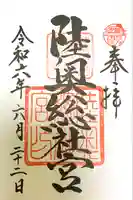 奉拝
陸奥総社宮
令和六年六月二十二日